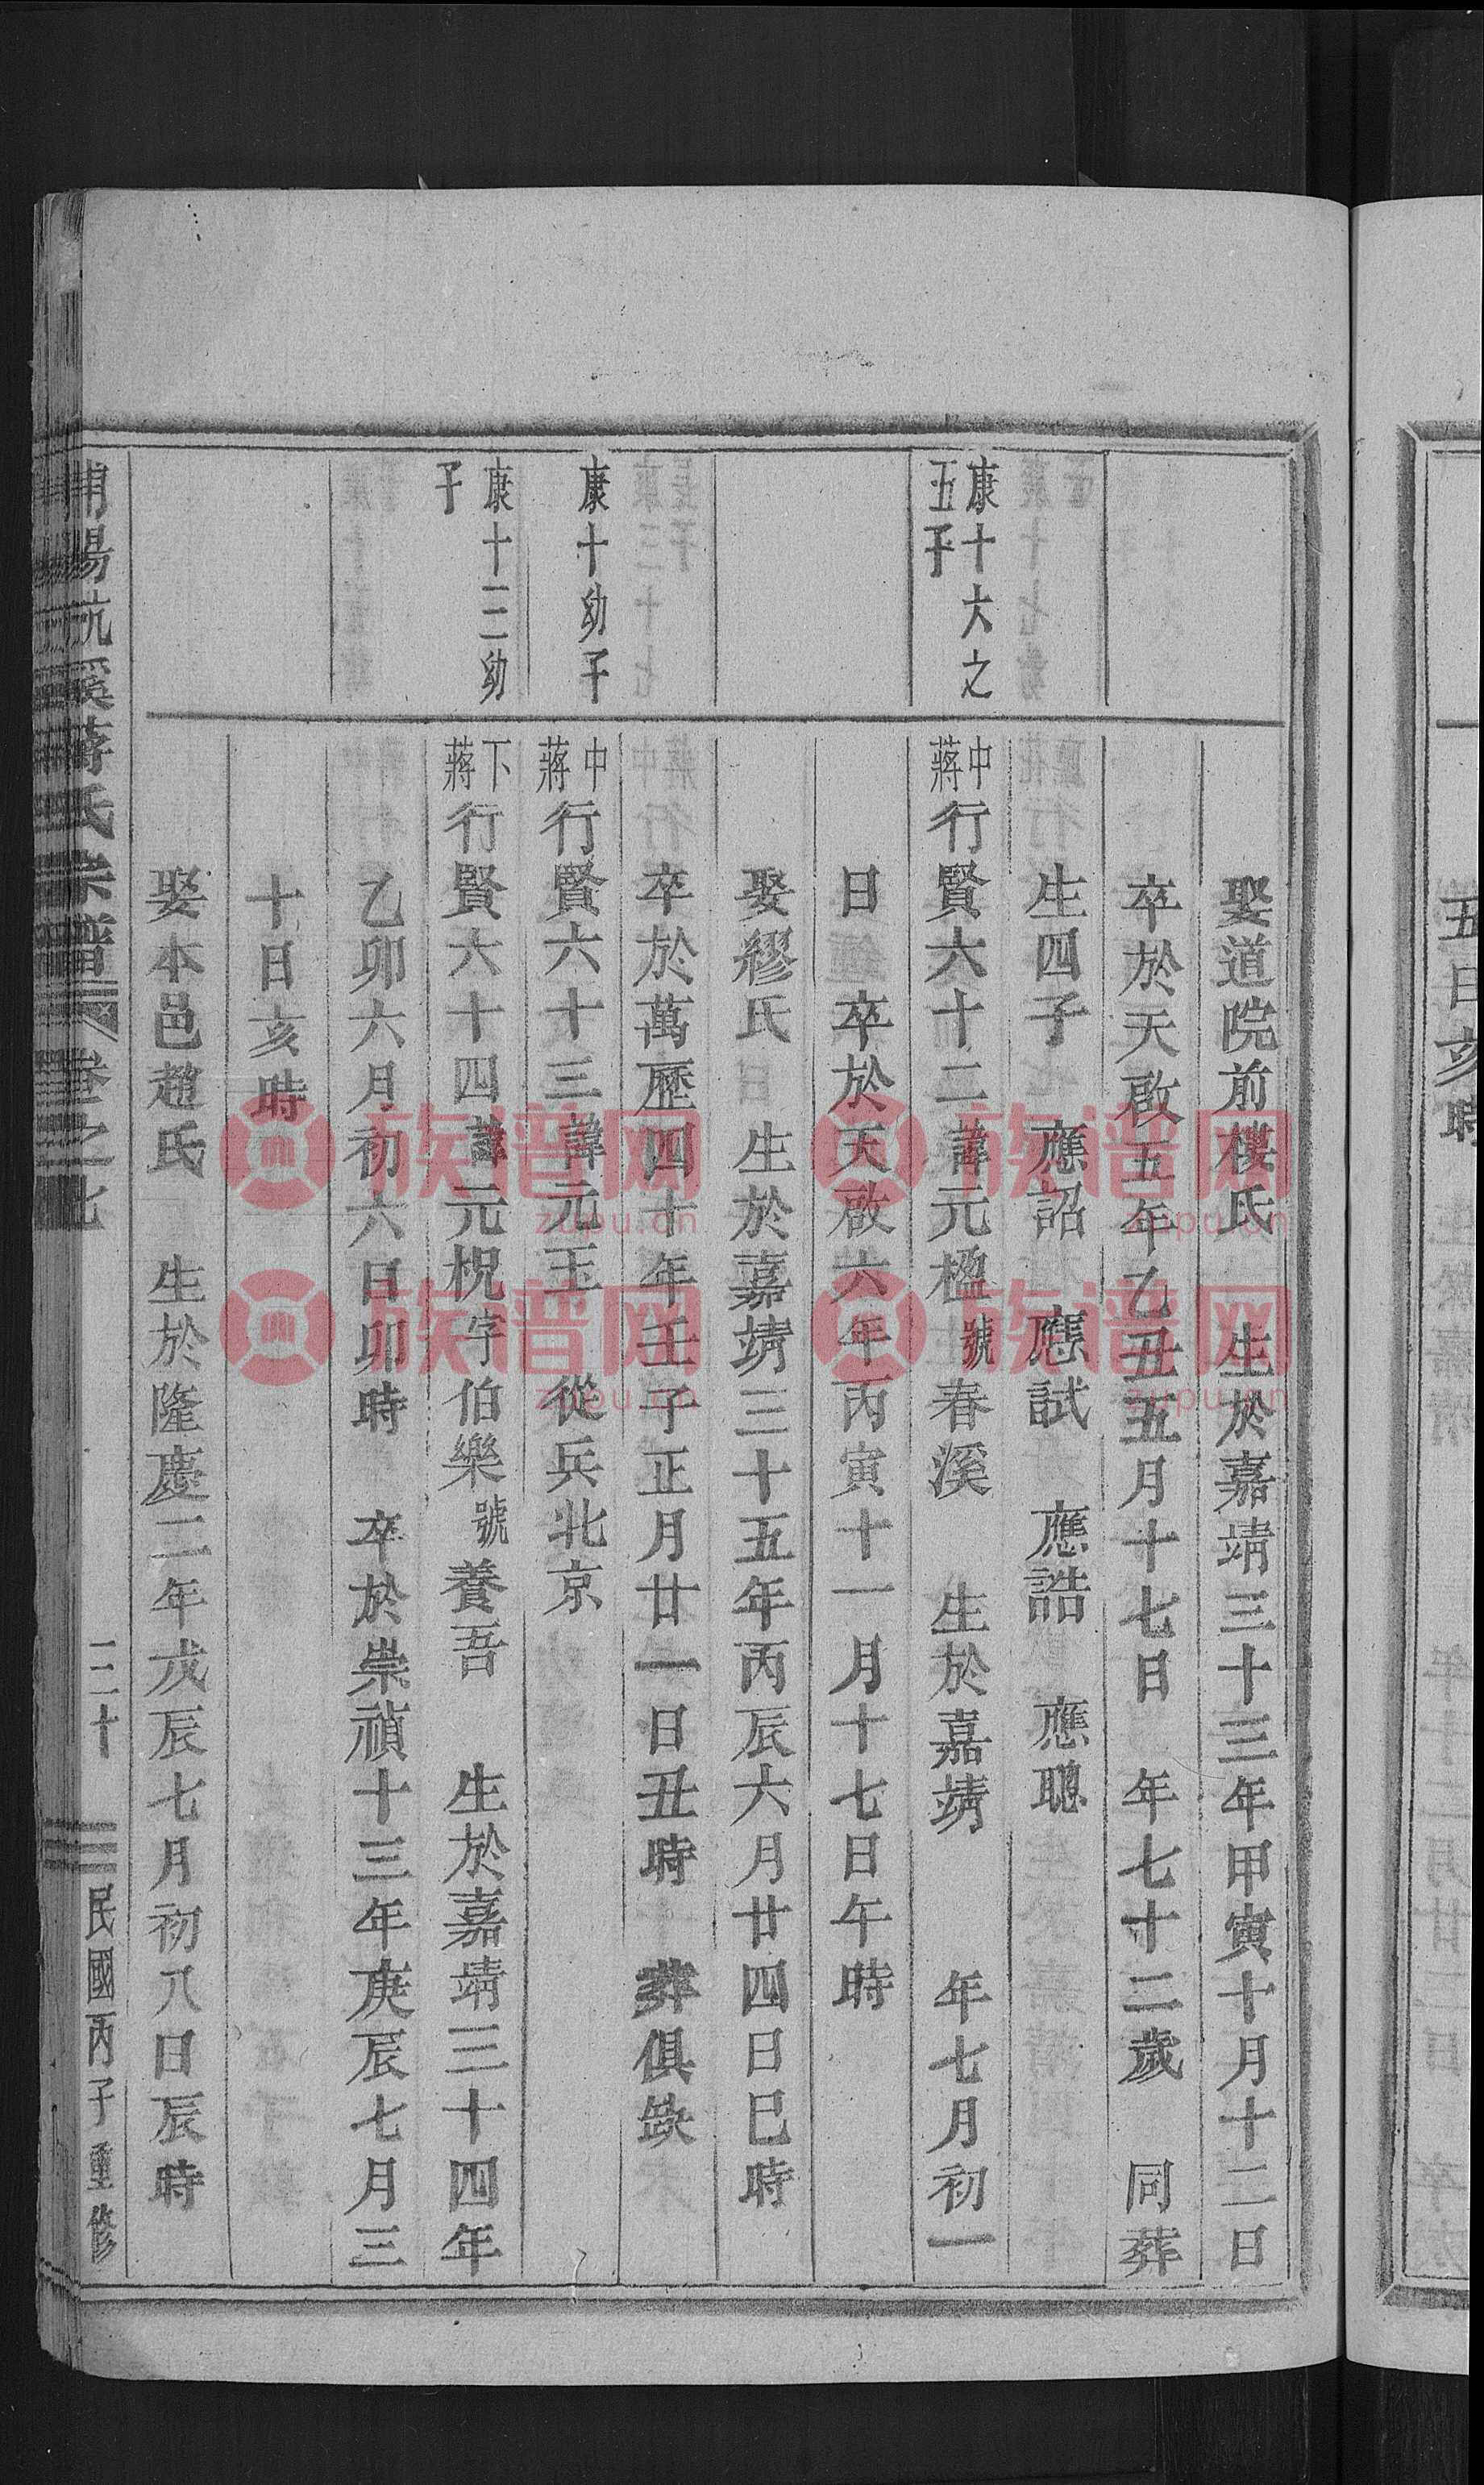 五日亥時
娶道院前樓氏　生於嘉靖三十三年甲寅十月十二日
卒於天啟五年乙丑五月十七日　年七十二歲　同葬
生四子　應詔　應試　應誥　應聰
康十六之
五子
中蔣行賢六十二諱元楹號春溪　生於嘉靖　年七月初一
日　卒於天啟六年丙寅十一月十七日午時
娶繆氏　生於嘉靖三十五年丙辰六月廿四日巳時
卒於萬歷四十年壬子正月廿一日丑時　葬俱缺
康十幼子
中蔣行賢六十三諱元玉　從兵北京
康十三幼
子
下蔣行賢六十四諱元柷字伯樂號養吾　生於嘉靖三十四年
乙卯六月初六日卯時　卒於崇禎十三年庚辰七月三
十日亥時
娶本邑趙氏　生於隆慶二年戊辰七月初八日辰時
陽杭溪蔣氏宗譜　卷之　二三十　民國丙子重修
族谱网
zupu.cn
族谱网
zupu.cn
族谱网
zupu.cn
族谱网
zupu.cn